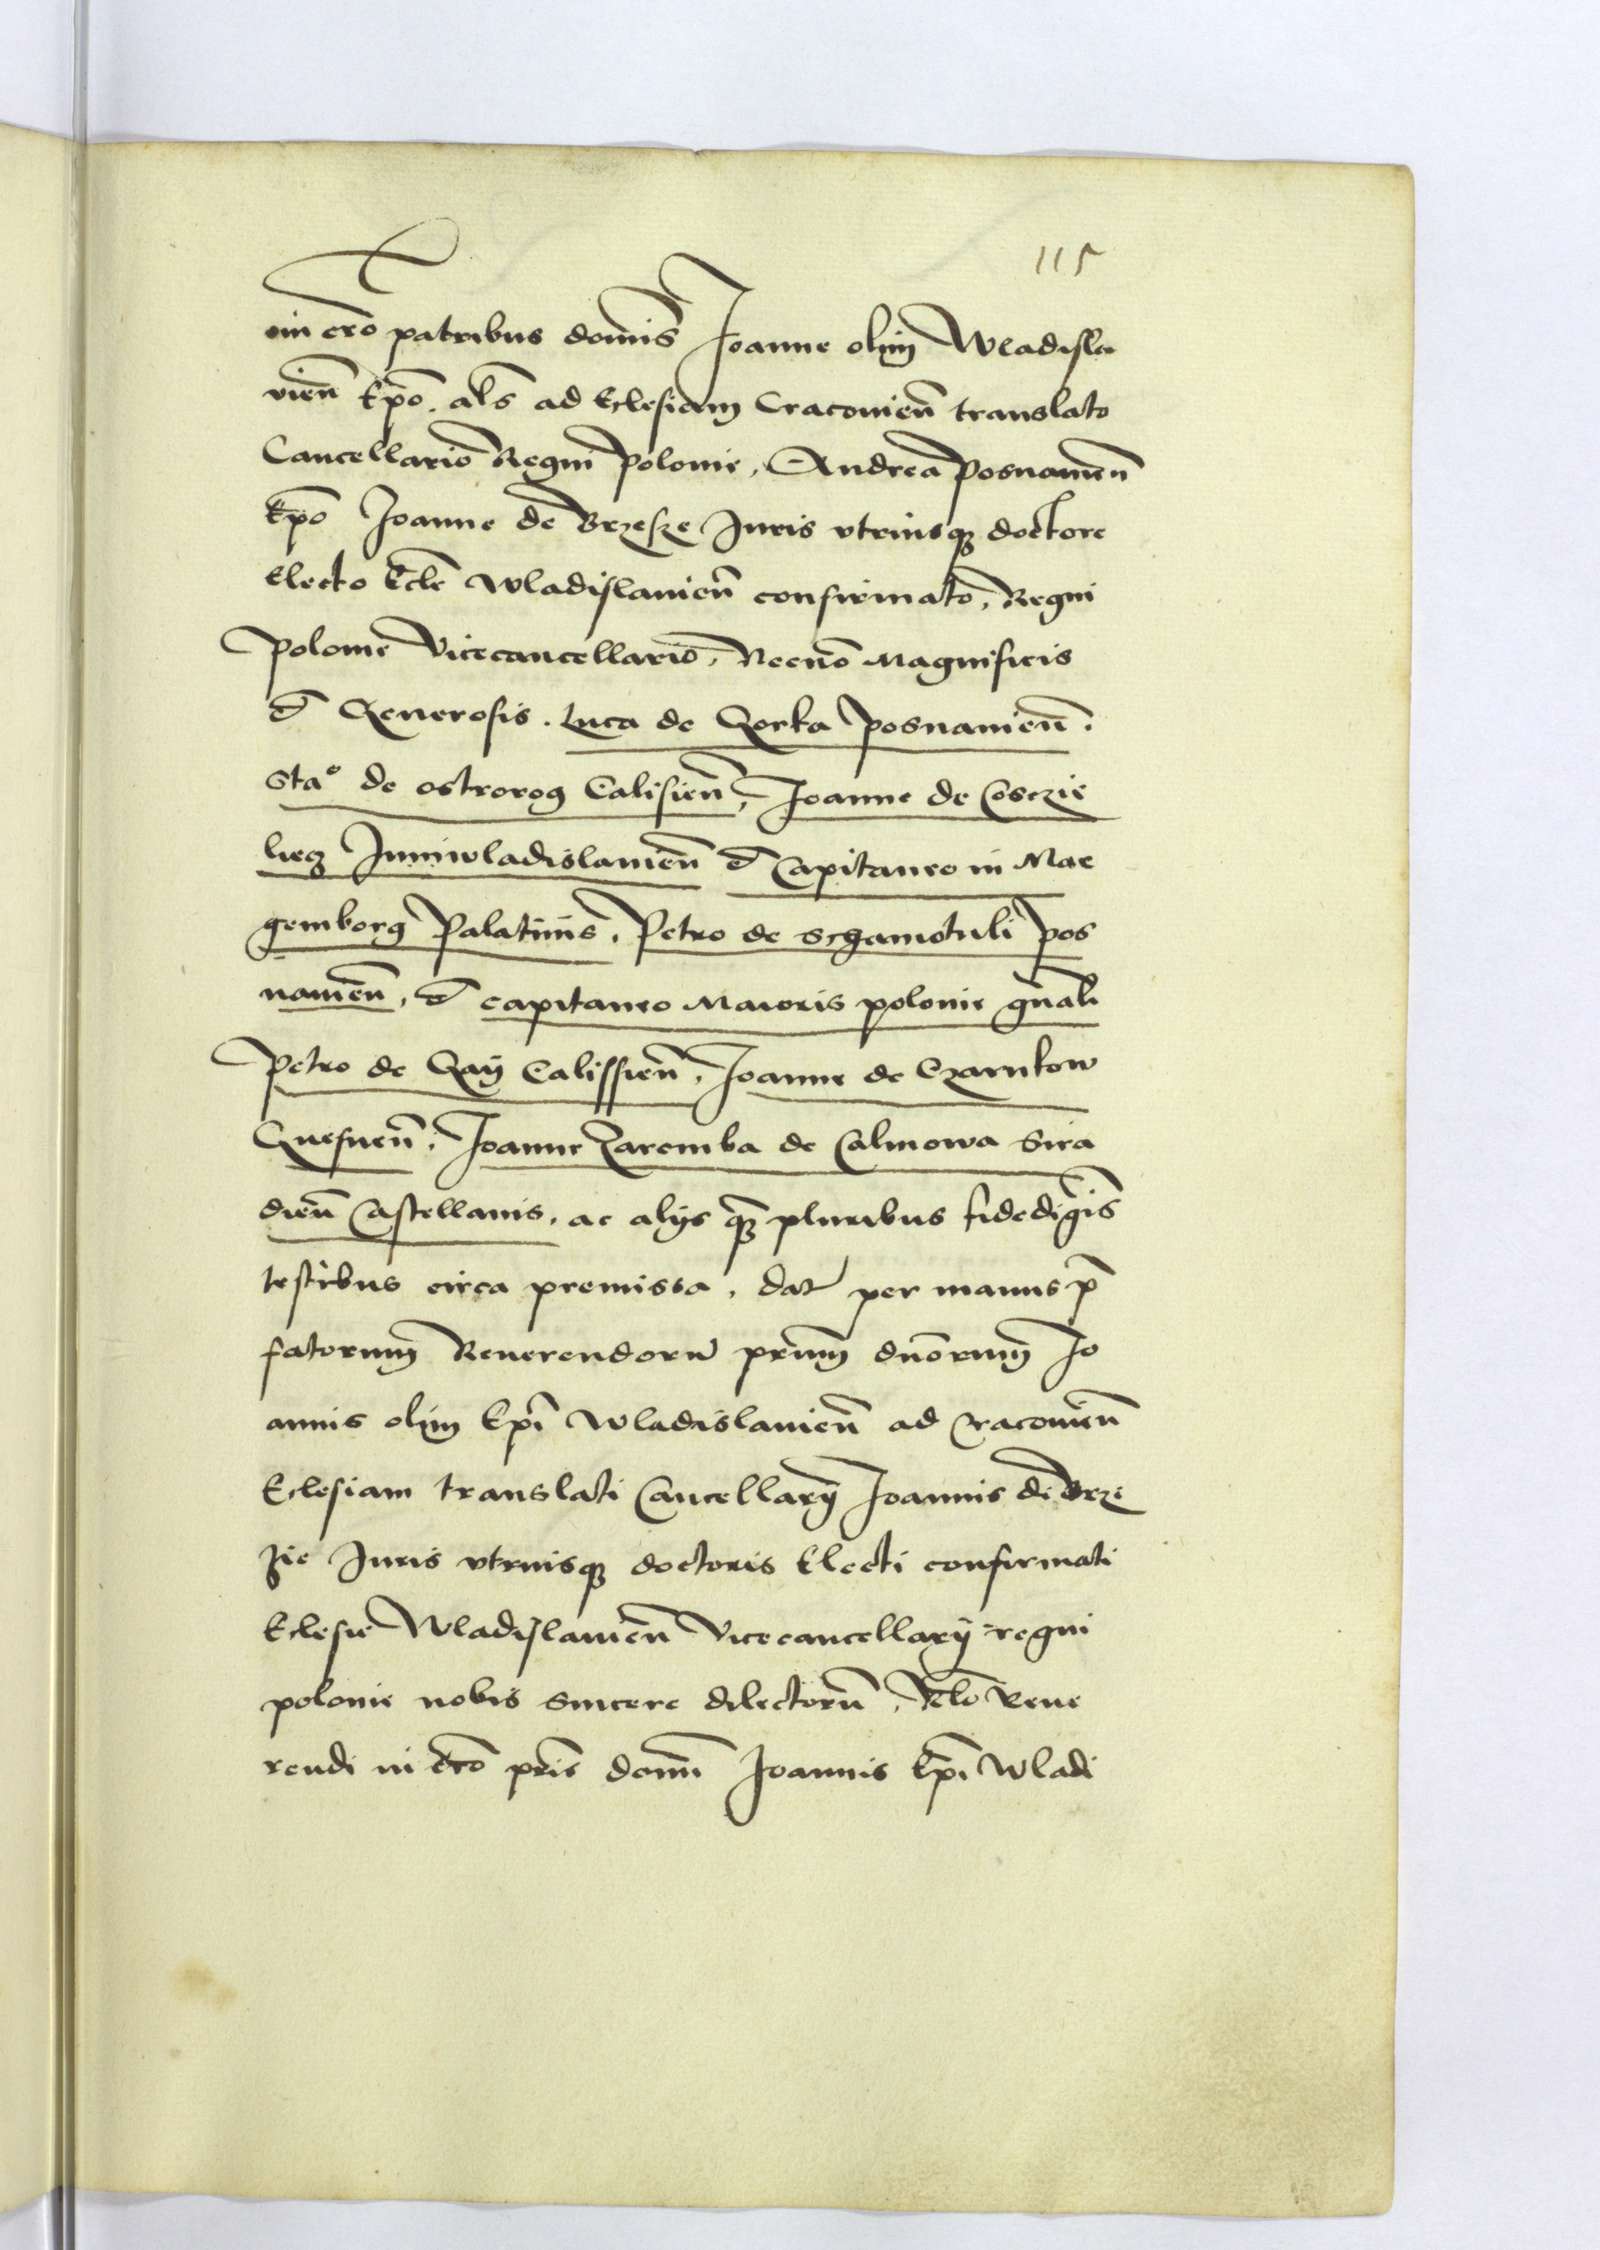 115
in cro patribus domīs Joanne olim Wladisla
vien̄ Ep̄o. al̄s ad Eclesiam Cracovien̄ translato
Cancellario Regni Polonie, Andrea Posnanien̄
Ep̄o Joanne de Brzeſze Juris vtriusq₃ doctore
Electo Eccl̄e Wladislauien̄ confirmato, Regni
Polonie Vicecancellario, Necnō Magnificis
et Generosis. Luca de Gorka Posnanien̄.
Stao de ostrorog Calisien̄, Joanne de Coseszie
lecz Juniwladislauien̄ et Capitaneo in Mae
gemborg Palatinis. Petro de Schamotuli Pos
nanien̄, et capitaneo Maioris polonie gn̄ali
Petro de Gay Calissien̄, Joanne de Czarnkow
Gnesnen̄. Joanne Zaremba de Calinowa Sira
dien̄ Castellanis, ac alijs q̄₃ pluribus fidedignis
testibus circa premissa. Dat per manus p̄
fatorum Reuerendorū prum̄ dn̄orum Jo
annis olim Ep̄i Wladislauien̄ ad Cracouien̄
Eclesiam translati Cancellarij Joannis de Brze
zie Juris vtriusq₃ doctoris Electi confirmati
Eclesie Wladislauien̄ Vicecancellarij regni
polonie nobis sincere dilectorū. Rel̄o Reue
rendi in cro pris̄ domī Joannis Ep̄i Wladi